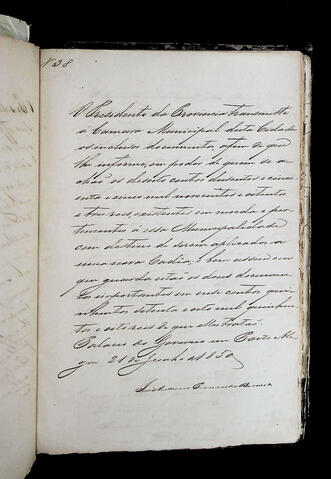 Nº 38
O Presidente da Provincia transmitte
á Camara Municipal desta Cidade
os inclusos documentos, afim de que
lhe informe, em poder de quem se a-
chaõ os desoito contos dusentos e cinco
enta e cinco mil novecentos e oitenta
e tres reis existentes em moeda e per-
tencentes á essa Municipalidade
com destino de serem applicados a
uma nova Cadêa, e bem assim em
que guarda estaõ os deus documen
tos importantes em sete contos, qui-
nhentos setenta e oito mil, quinhen-
tos e oito reis de que elles trataõ.
Palacio do Governo em Porto Ale-
gre 21 de Junho de 1850